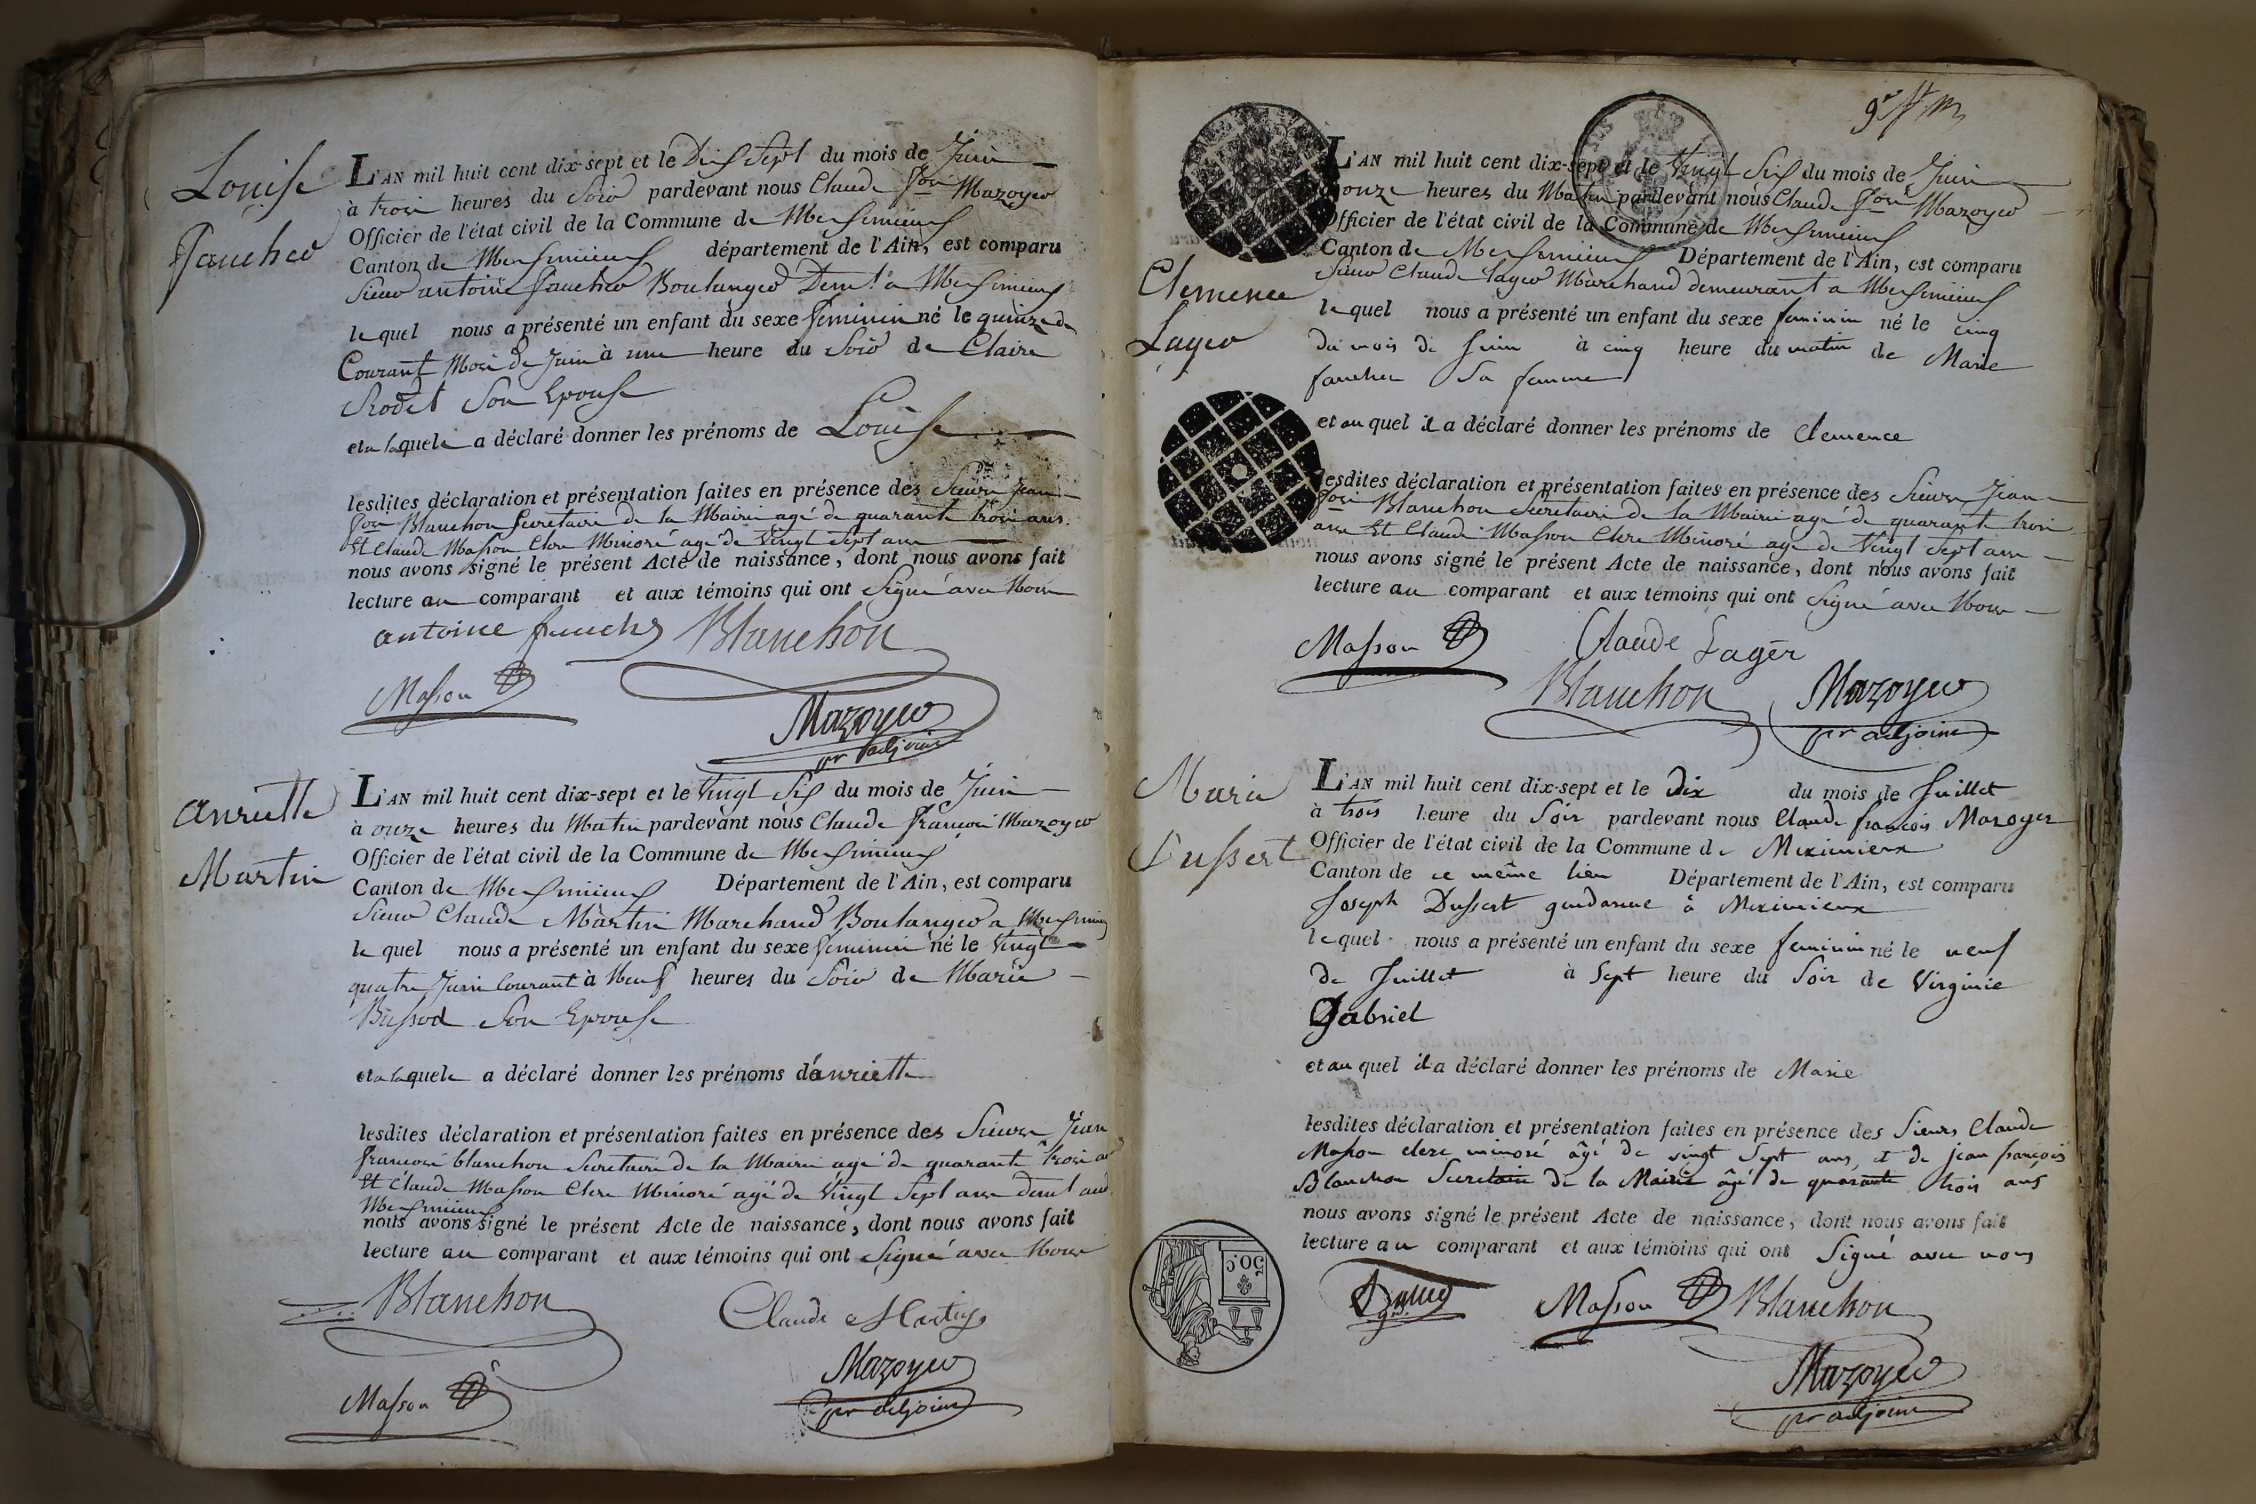 Louise
Faucher
L'AN mil huit cent dix-sept et le Dix Sept du mois de Juin
à trois heures du Soir pardevant nous Claude fois Mazoyer
Officier de l'état civil de la Commune de Meximieux
Canton de Meximieux département de l'Ain, est comparu
Sieur antoine faucher Boulanger Demt à Meximieux
lequel nous a présenté un enfant du sexe feminin né le quinze du
Courant Mois de Juin à une heure du Soir de Claire
Rodet Son Epouse
et a laquele a déclaré donner les prénoms de Louise
lesdites déclaration et présentation faites en présence des Sieurs Jean
fois Blanchon Secretaire de la Mairie agé de quarante trois ans
Et Claude Masson Clerc Minoré agé de Vingt Sept ans
nous avons signé le présent Acte de naissance, dont nous avons fait
lecture au comparant et aux témoins qui ont Signé avec Nous
antoine faucher Blanchon
Masson
Mazoyer
pr adjoint
anriette
Martin
L'AN mil huit cent dix-sept et le Vingt Six du mois de Juin
à onze heures du Matin pardevant nous Claude françois Mazoyer
Officier de l'état civil de la Commune de Meximieux
Canton de Meximieux Département de l'Ain, est comparu
Sieur Claude Martin Marchand Boulanger a Meximieux
lequel nous a présenté un enfant du sexe feminin né le Vingt
quatre Juin Courant à Neuf heures du Soir de Marie
Bussod Son Epouse
et a laquele a déclaré donner les prénoms d'anriette
lesdites déclaration et présentation faites en présence des Sieurs Jean
francois blanchon Secretaire de la Mairie agé de quarante trois ans
Et Claude Masson Clerc Minoré agé de Vingt Sept ans demt aud
Meximieux
nous avons signé le présent Acte de naissance, dont nous avons fait
lecture au comparant et aux témoins qui ont Signé avec Nous
Blanchon Claude Martin
Masson Mazoyer
pr adjoint
Clemence
Lager
L'AN mil huit cent dix-sept et le Vingt Six du mois de Juin
à onze heures du Matin pardevant nous Claude fois Mazoyer
Officier de l'état civil de la Commune de Meximieux
Canton de Meximieux Département de l'Ain, est comparu
Sieur Claude lager Marchand demeurant a Meximieux
lequel nous a présenté un enfant du sexe feminin né le cinq
du mois de Juin à cinq heure du matin de Marie
faucher Sa femme
et au quel il a déclaré donner les prénoms de clemence
lesdites déclaration et présentation faites en présence des Sieurs Jean
fois Blanchon Secretaire de la Mairie agé de quarante trois
ans Et Claude Masson Clerc Minoré agé de Vingt Sept ans
nous avons signé le présent Acte de naissance, dont nous avons fait
lecture au comparant et aux témoins qui ont Signé avec Nous
Masson Claude Lager
Blanchon Mazoyer
pr adjoint
Marie
Dussert
L'AN mil huit cent dix-sept et le dix du mois de Juillet
à trois heure du Soir pardevant nous Claude françois Mazoyer
Officier de l'état civil de la Commune de Meximieux
Canton de ce même lieu Département de l'Ain, est comparu
Joseph Dussert gendarme à Meximieux
lequel nous a présenté un enfant du sexe feminin né le neuf
de Juillet à Sept heure du Soir de Virginie
Gabriel
et au quel il a déclaré donner les prénoms de Marie
lesdites déclaration et présentation faites en présence des Sieurs Claude
Masson clerc minoré âgé de vingt Sept ans, et de jean françois
Blanchon Secretaire de la Mairie âgé de quarante trois ans
nous avons signé le présent Acte de naissance, dont nous avons fait
lecture au comparant et aux témoins qui ont Signé avec nous
Masson Blanchon
Mazoyer
pr adjoint
50 C.